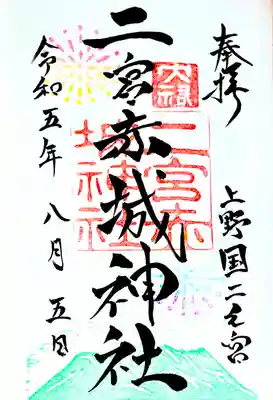 奉拝
上野国二之宮
二宮赤城神社
二宮赤
城神社
令和五年 八月 五日